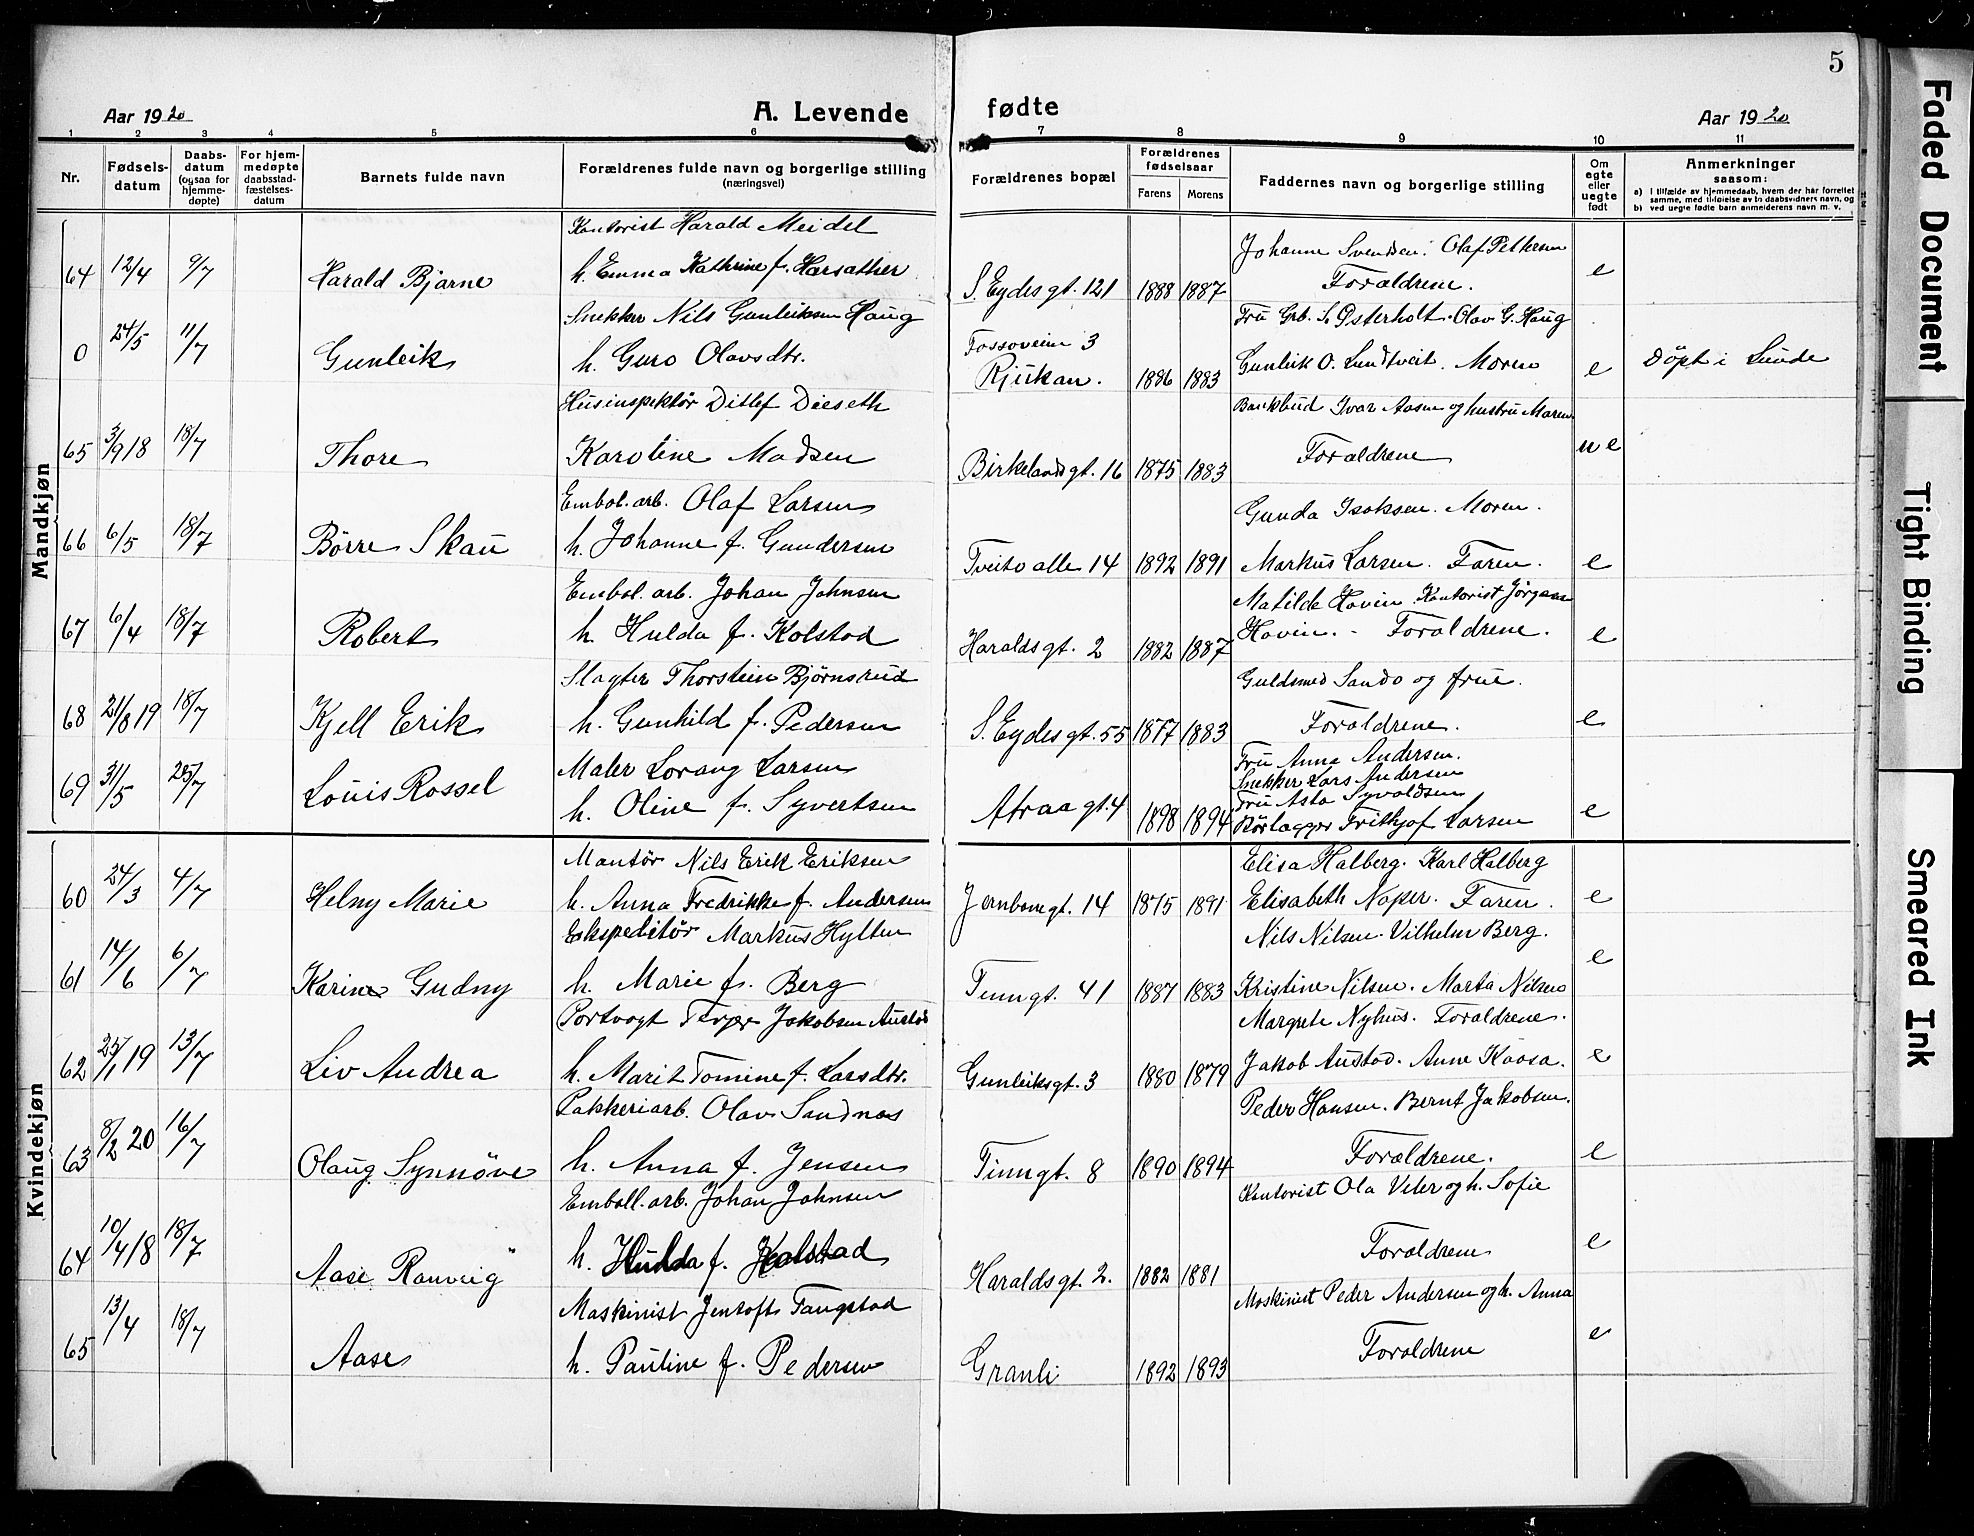 5
Aar 1920 A. Levende fødte Aar 1920
1 2 3 4 5 6 7 8 9 10 11
Nr. Fødselsdatum Daabsdatum (ogsaa for hjemmedøpte) For hjemmedøpte daabsstadfæstelsesdatum Barnets fulde navn Forældrenes fulde navn og borgerlige stilling (næringsvei) Forældrenes bopæl Forældrenes fødselsaar Farens Morens Faddernes navn og borgerlige stilling Om egte eller uegte født Anmerkninger saasom:
a) I tilfælde av hjemmedaab, hvem der har forrettet samme, med tilføielse av to daabsvidners navn, og
b) ved uegte fødte barn anmelderens navn m. v.
Mandkjøn
Kontorist Harald Meidel
Johanne Svendsen. Olaf Pettersen
64 12/4 9/7 Harald Bjarne h. Emma Kathrine f. Harsather S. Eydesgt. 121 1888 1887 Foraldrene. e
Snekker Nils Gunleiksen Haug
Fru Grb. S. Østerholt. Olav G. Haug
0 24/5 11/7 Gunleik h. Guro Olavsdtr. Fossoveien 3 Rjukan. 1886 1883 Gunleik O. Lundtveit. Moren e Döpt i Lunde
Husinspektör Ditlef Dieseth
Bankbud Ivar Aasen og hustru Maren
65 3/9 18 18/7 Thore Karoline Madsen Birkelandsgt. 16 1875 1883 Foraldrene u e
Embal. arb. Olaf Larsen
Gunda Isaksen. Moren.
66 6/5 18/7 Börre Skau h. Johanne f. Gundersen Tveito alle 14 1892 1891 Markus Larsen. Faren. e
Embal. arb. Johan Johnsen
Matilde Hovin. Kontorist Jörgen
67 6/4 18/7 Robert h. Hulda f. Kolstad Haraldsgt. 2 1882 1887 Hovin. - Foraldrene. e
Slagter Thorstein Bjørnsrud
Guldsmed Sando og frue.
68 21/8 19 18/7 Kjell Erik h. Gunhild f. Pedersen S. Eydesgt. 55 1877 1883 Foraldrene. e
Maler Lorang Larsen
Fru Anna Andersen.
Snekker Lars Andersen
Fru Asta Syvaldsen
69 31/5 25/7 Louis Rossel h. Oline f. Syvertsen Atraagt. 4 1898 1894 Rörlagger Frithjof Larsen e
Kvindekjøn
Montör Nils Erik Eriksen
Elisa Halberg. Karl Halberg
60 24/3 4/7 Helny Marie h. Anna Fredrikke f. Andersen Jernbanegt. 14 1875 1891 Elisabeth Noper. Faren. e
Ekspeditör Markus Hylten
Nils Nilsen. Vilhelm Berg.
61 14/6 6/7 Karine Gudny h. Marie f. Berg Tinngt. 41 1887 1883 Kristine Nilsen. Marta Nilsen e
Portvogt Terjer Jakobsen Austad
Margrete Nyhus. Foraldrene.
62 25/1 19 13/7 Liv Andrea h. Marit Tomine f. Larsdtr. Gunleiksgt. 3 1880 1879 Jakob Austad. Anne Kaasa. e
Pakkeriarb. Olav Sandnas
Peder Hansen. Bernt Jakobsen.
63 8/2 20 16/7 Olaug Synnöve h. Anna f. Jensen Tinngt. 8 1890 1894 Foraldrene. e
Emball. arb. Johan Johnsen
Kontorist Ola Veler og h. Sofie
64 10/4 18 18/7 Aase Ranveig h. Hulda f. Kolstad Haraldsgt. 2. 1882 1881 Foraldrene e
Maskinist Jentoft Tangstad
Maskinist Peder Andersen og h. Anna
65 13/4 18/7 Aase h. Pauline f. Pedersen Granli 1892 1893 Foraldrene e
Faded Document
Tight Binding
Smeared Ink